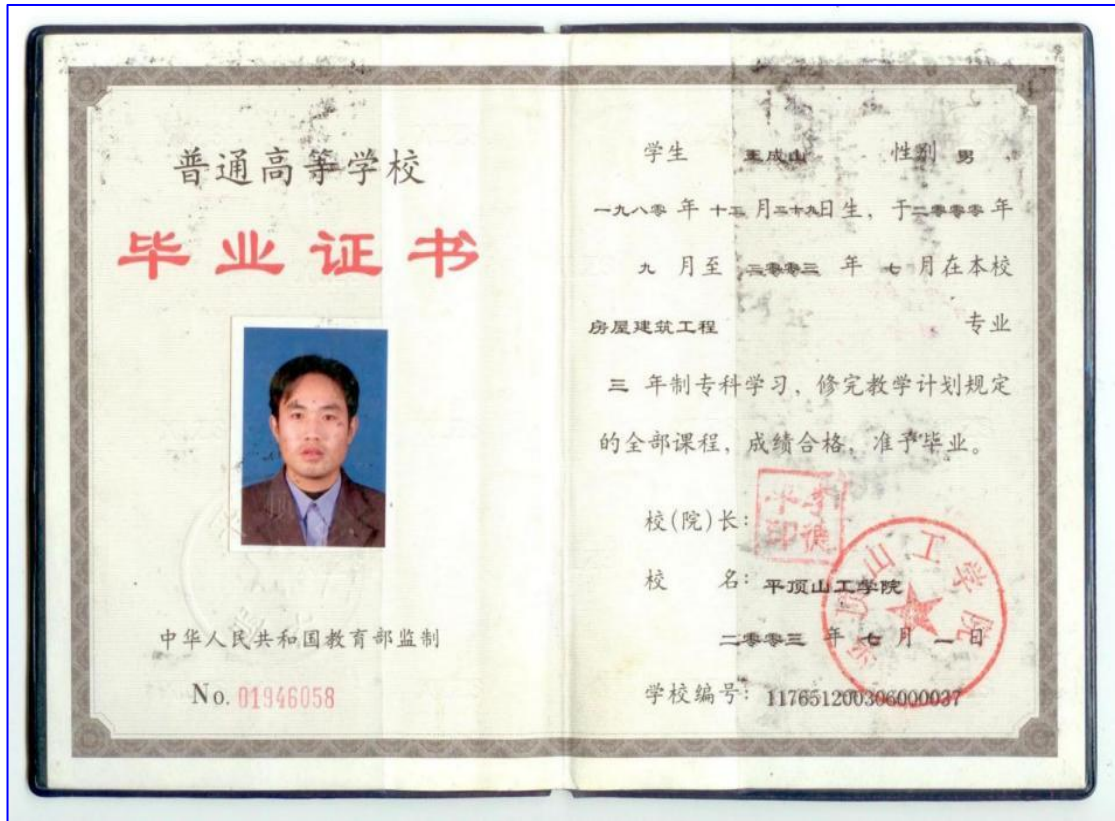 普通高等学校
毕业证书
中华人民共和国教育部监制
No. 01946058
学生 王成山 性别 男 ,
一九八零 年 十二 月二十九日生, 于二零零零 年
九 月至 二零零三 年 七 月在本校
房屋建筑工程 专业
三 年制专科学习, 修完教学计划规定
的全部课程, 成绩合格, 准予毕业。
校(院)长:
李德平印
校 名: 平顶山工学院
平顶山工学院
二零零三 年 七 月 一 日
学校编号: 117651200306000037